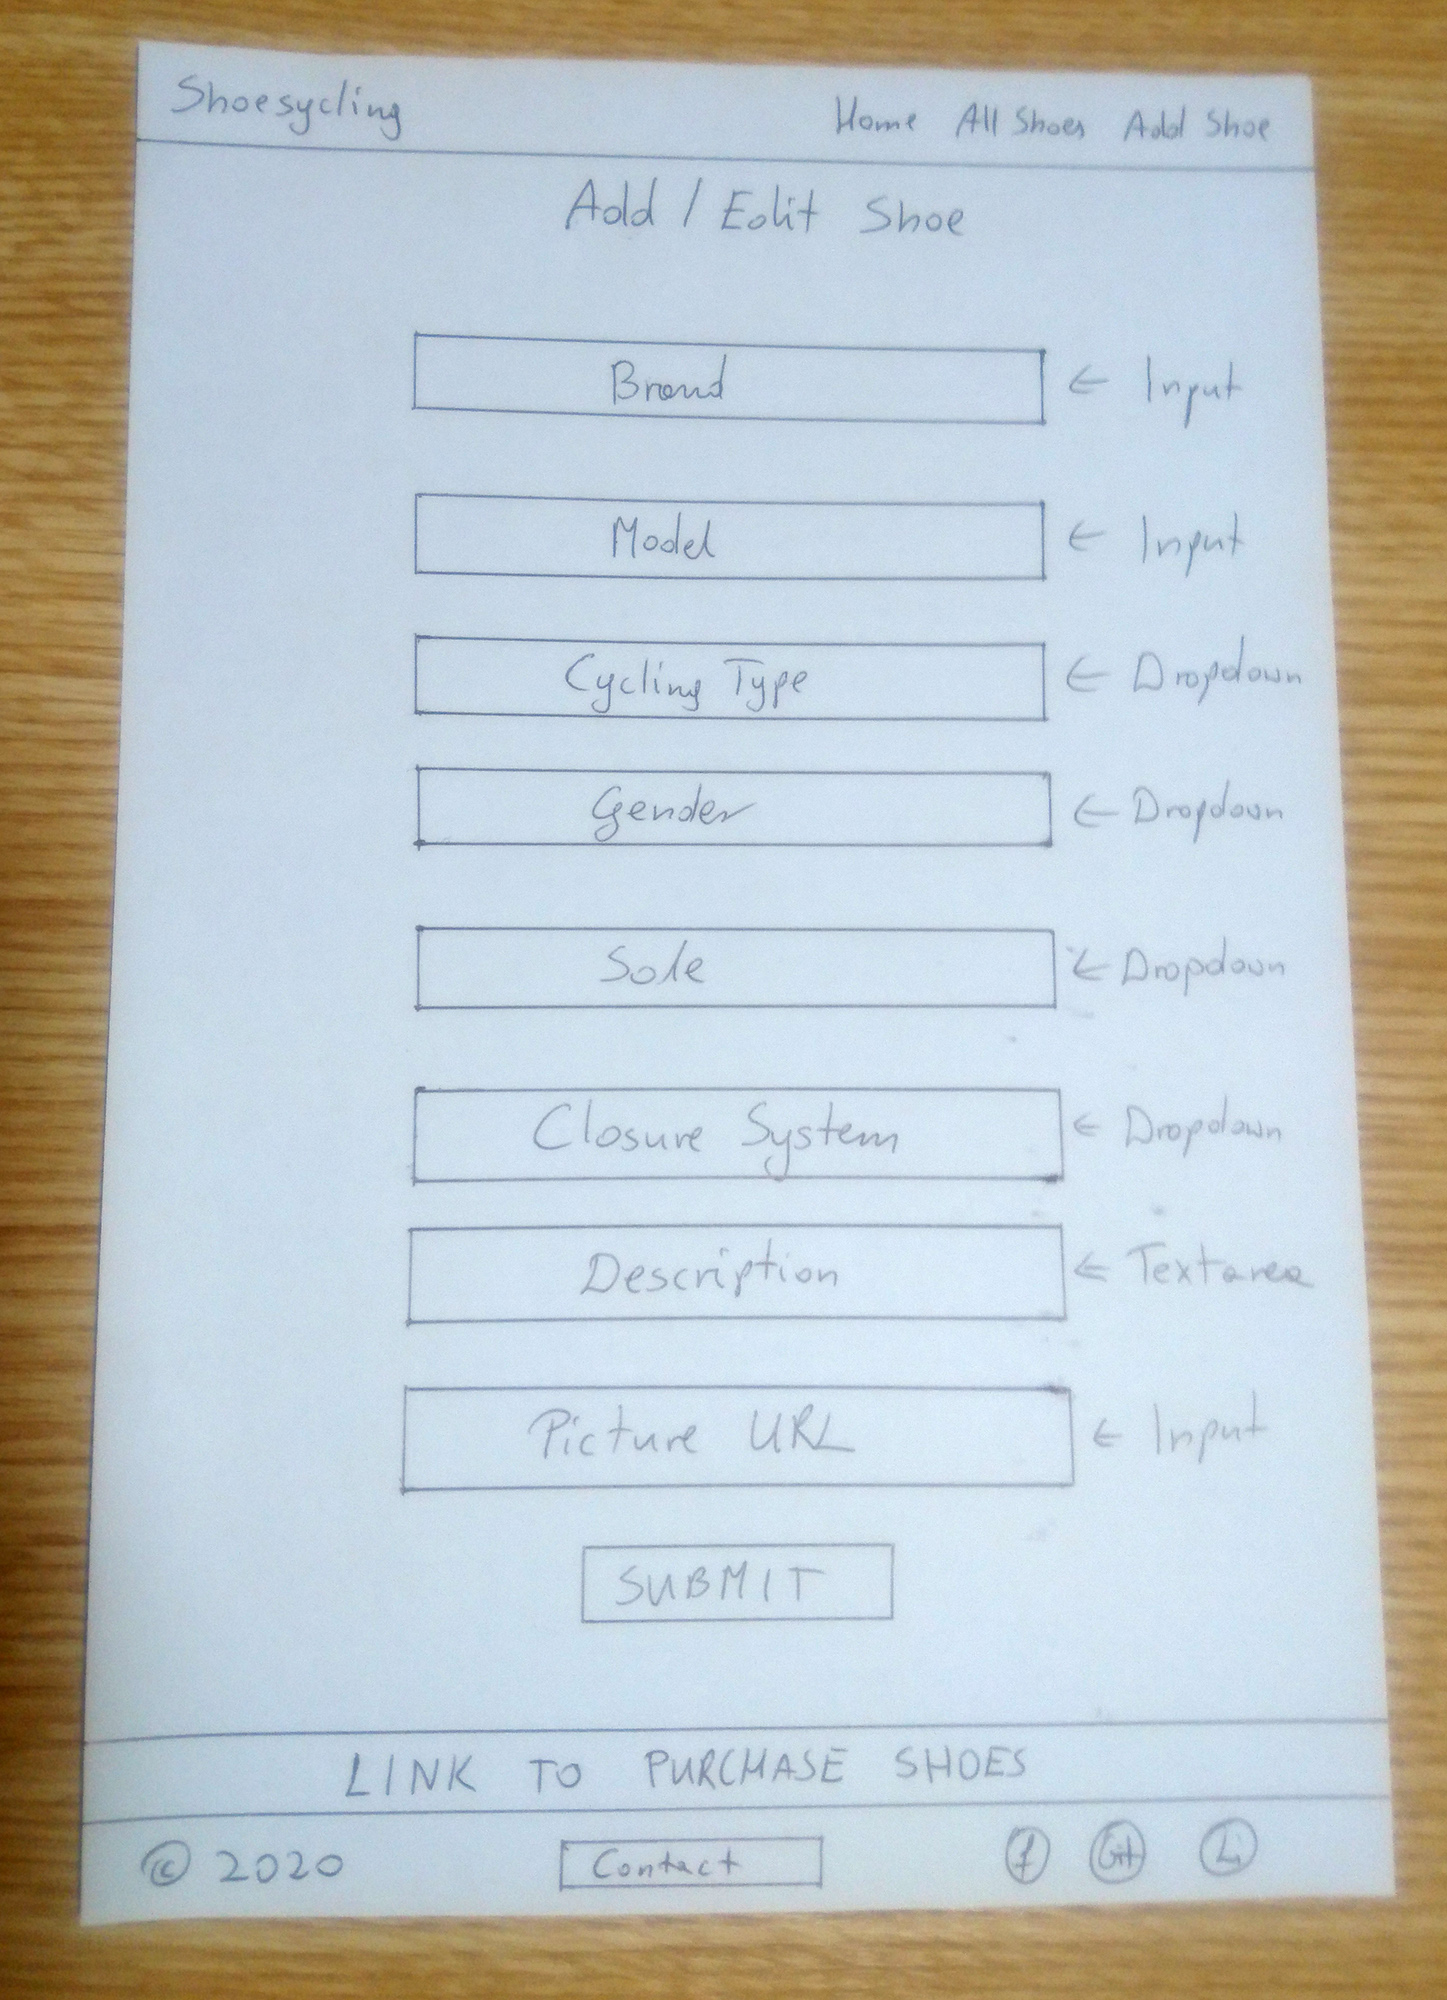 Shoesycling Home All Shoes Add Shoe
Add / Edit Shoe
Brand ← Input
Model ← Input
Cycling Type ← Dropdown
Gender ← Dropdown
Sole ← Dropdown
Closure System ← Dropdown
Description ← Textarea
Picture URL ← Input
SUBMIT
LINK TO PURCHASE SHOES
© 2020 Contact f Git Li